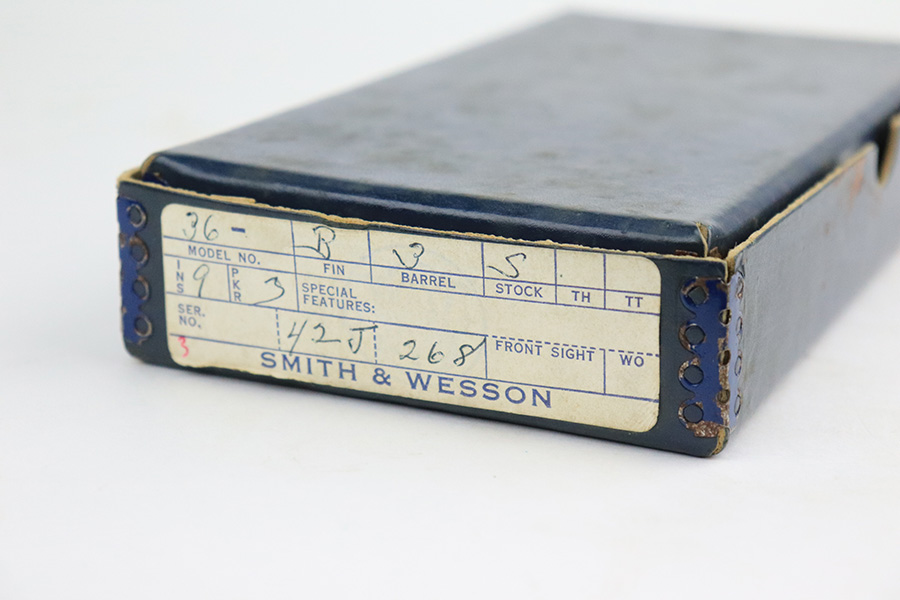 36 - B 3 S
MODEL NO. FIN BARREL STOCK TH TT
INS 9 PKR 3 SPECIAL FEATURES:
SER. NO. 42J 268 FRONT SIGHT WO
3
SMITH & WESSON